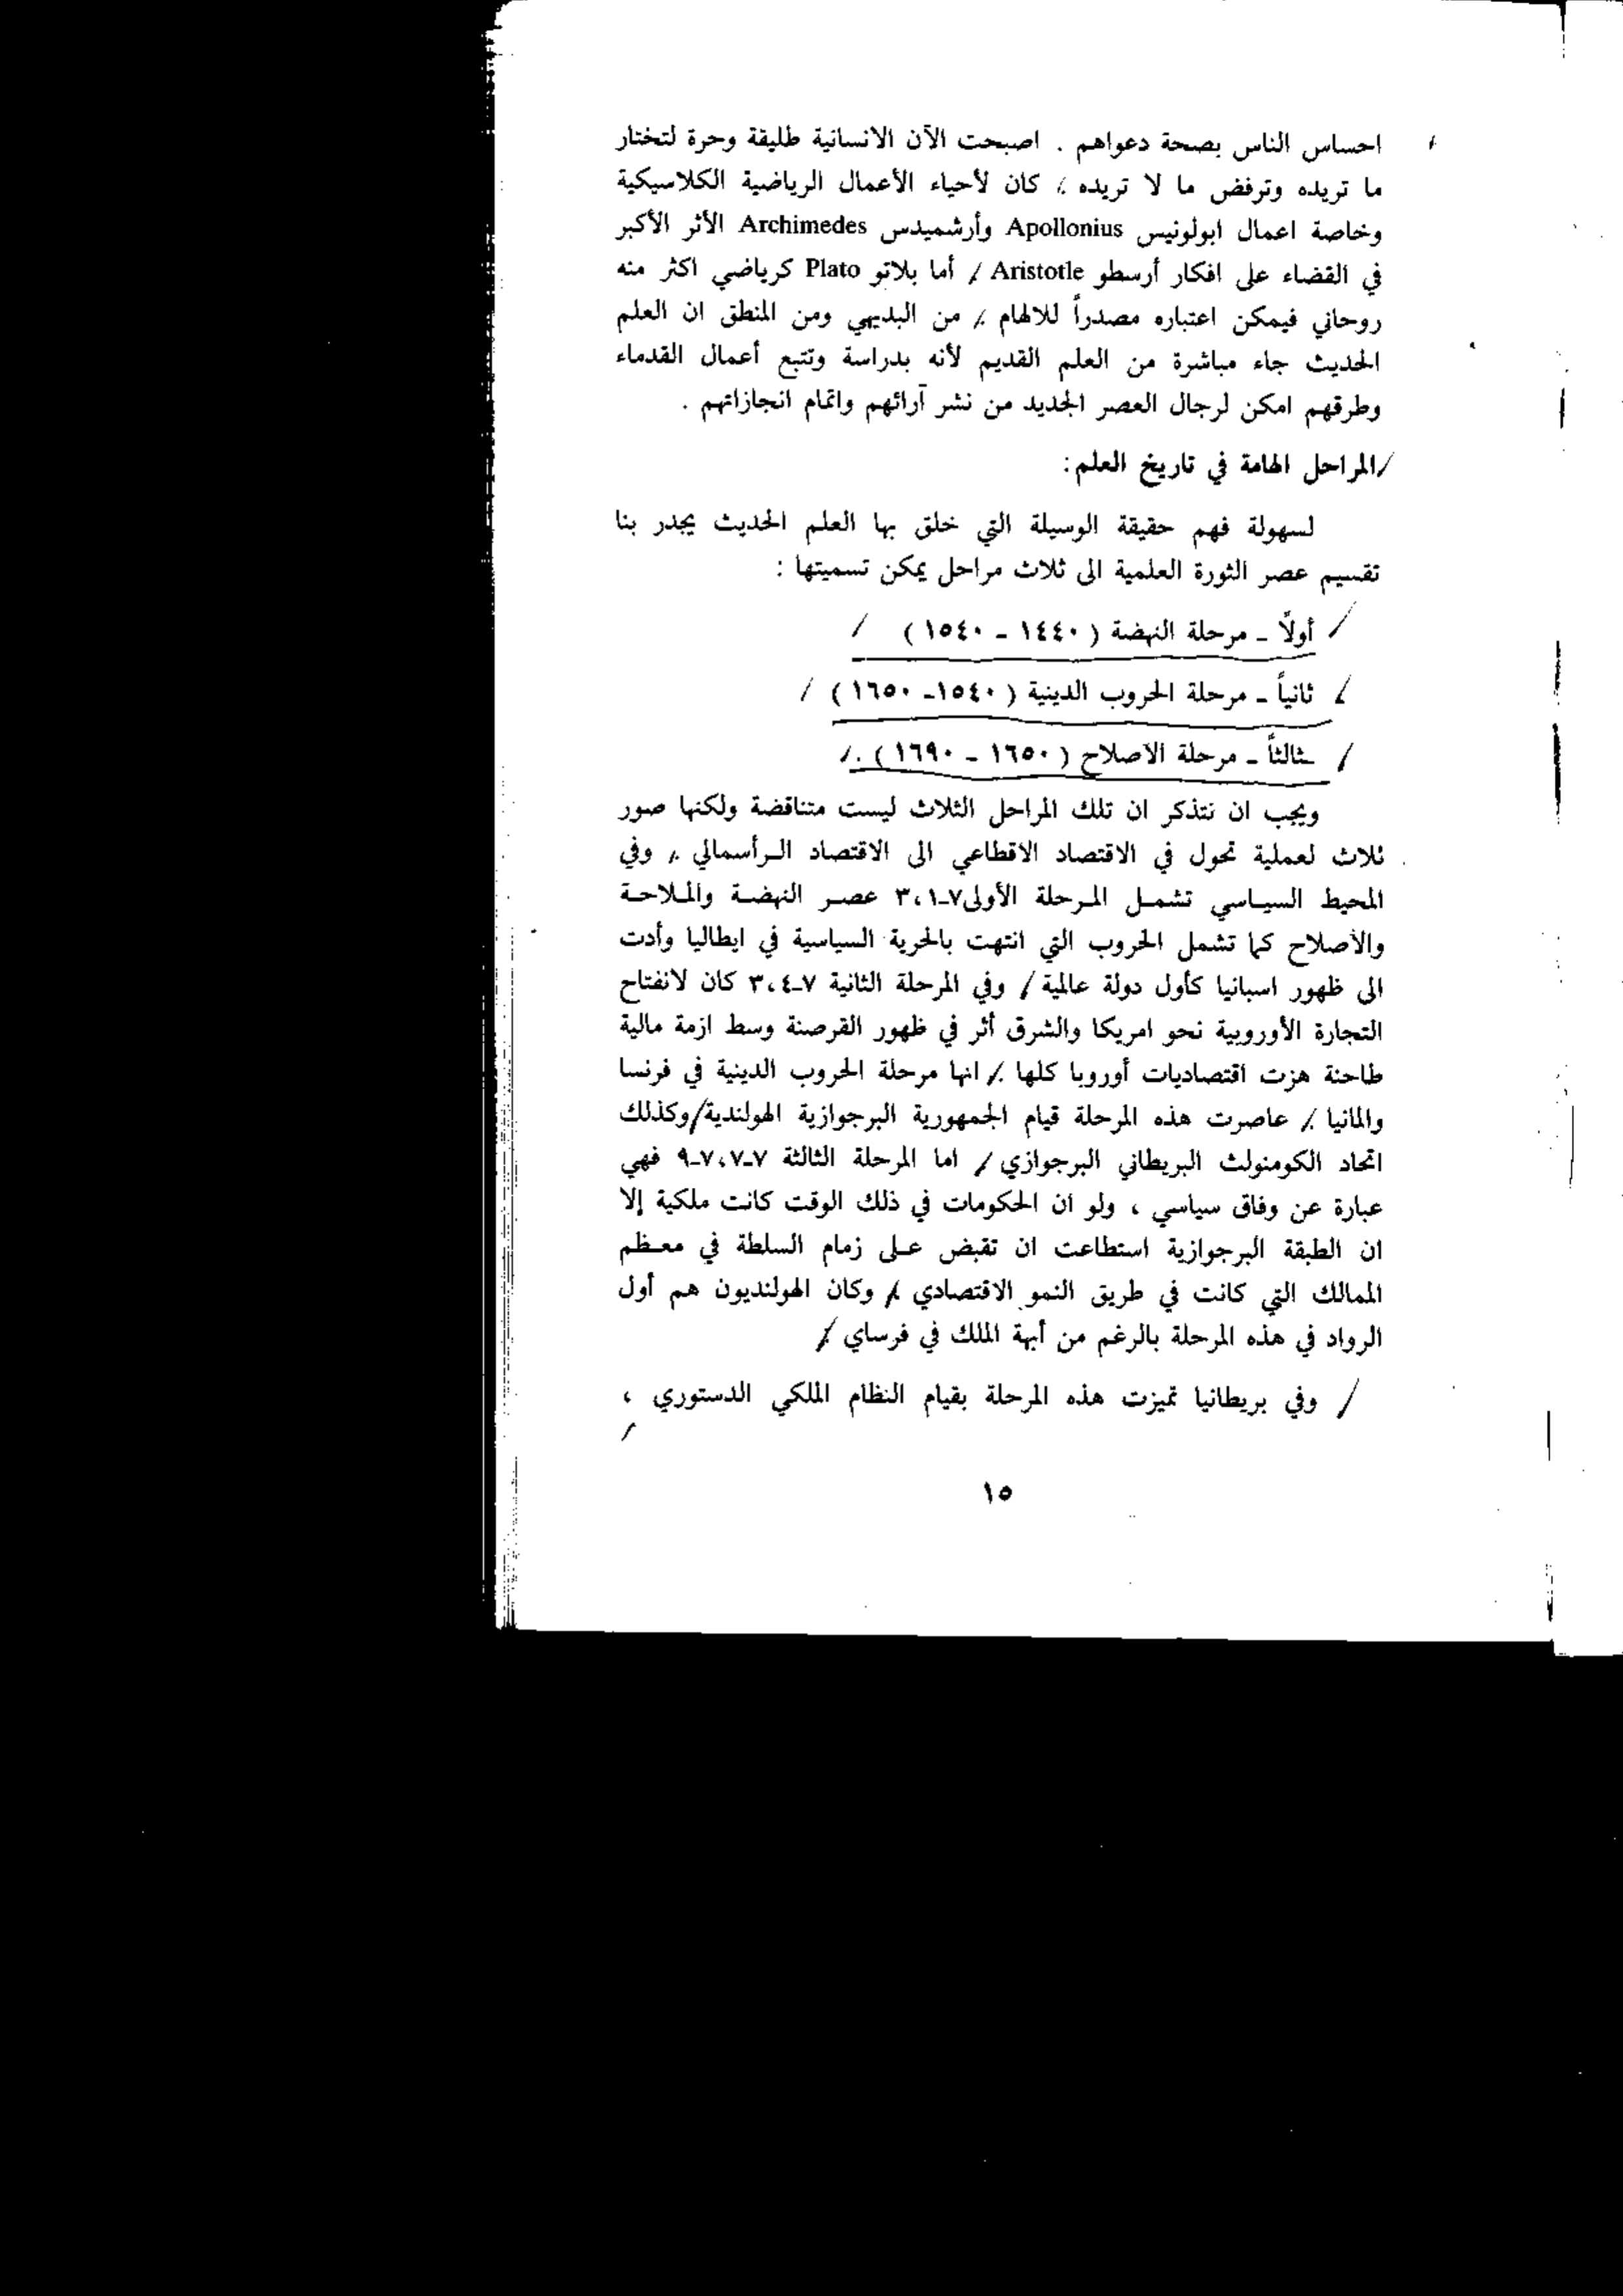 احساس الناس بصحة دعواهم . اصبحت الآن الانسانية طليقة وحرة لتختار
ما تريده وترفض ما لا تريده . كان لأحياء الأعمال الرياضية الكلاسيكية
وخاصة اعمال ابولونيس Apollonius وأرشميدس Archimedes الأثر الأكبر
في القضاء على افكار أرسطو Aristotle / أما بلاتو Plato كرياضي اكثر منه
روحاني فيمكن اعتباره مصدراً للالهام . من البديهي ومن المنطق ان العلم
الحديث جاء مباشرة من العلم القديم لأنه بدراسة وتتبع أعمال القدماء
وطرقهم امكن لرجال العصر الجديد من نشر آرائهم واتمام انجازاتهم .
/المراحل الهامة في تاريخ العلم:
لسهولة فهم حقيقة الوسيلة التي خلق بها العلم الحديث يجدر بنا
تقسيم عصر الثورة العلمية الى ثلاث مراحل يمكن تسميتها :
/ أولاً ـ مرحلة النهضة ( ١٤٤٠ - ١٥٤٠ ) /
/ ثانياً ـ مرحلة الحروب الدينية ( ١٥٤٠- ١٦٥٠ ) /
/ ثالثاً ـ مرحلة الاصلاح ( ١٦٥٠ - ١٦٩٠ ) . /
ويجب ان نتذكر ان تلك المراحل الثلاث ليست متناقضة ولكنها صور
ثلاث لعملية تحول في الاقتصاد الاقطاعي الى الاقتصاد الرأسمالي . وفي
المحيط السياسي تشمل المرحلة الأولى ٧-٣،١ عصر النهضة والملاحة
والأصلاح كما تشمل الحروب التي انتهت بالحرية السياسية في ايطاليا وأدت
الى ظهور اسبانيا كأول دولة عالمية / وفي المرحلة الثانية ٧-٣،٤ كان لانفتاح
التجارة الأوروبية نحو امريكا والشرق أثر في ظهور القرصنة وسط ازمة مالية
طاحنة هزت اقتصاديات أوروبا كلها . / انها مرحلة الحروب الدينية في فرنسا
والمانيا . / عاصرت هذه المرحلة قيام الجمهورية البرجوازية الهولندية/وكذلك
اتحاد الكومنولث البريطاني البرجوازي / اما المرحلة الثالثة ٧-٧،٧-٩ فهي
عبارة عن وفاق سياسي ، ولو ان الحكومات في ذلك الوقت كانت ملكية إلا
ان الطبقة البرجوازية استطاعت ان تقبض على زمام السلطة في معظم
الممالك التي كانت في طريق النمو الاقتصادي . / وكان الهولنديون هم أول
الرواد في هذه المرحلة بالرغم من أبهة الملك في فرساي . /
/ وفي بريطانيا تميزت هذه المرحلة بقيام النظام الملكي الدستوري ،
١٥